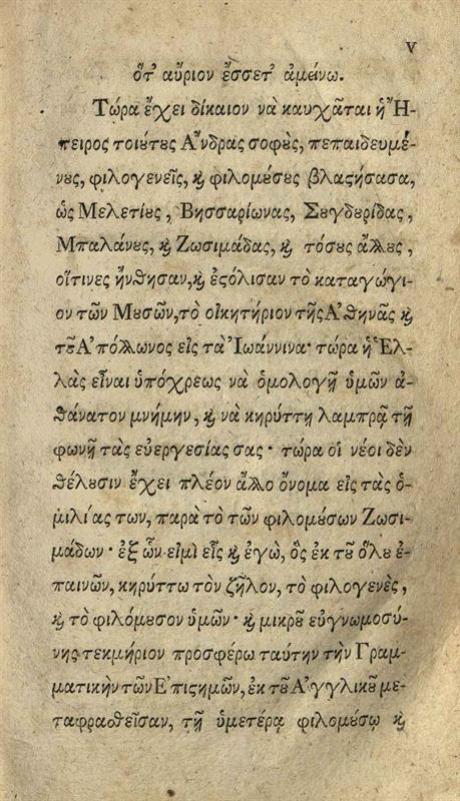 v
ὅτ' αὔριον ἔσσετ' ἀμείνω.
Τώρα ἔχει δίκαιον νὰ καυχᾶται ἡ Ἤ-
πειρος τοιȣ́τȣς Ἄνδρας σοφȣ̀ς, πεπαιδευμέ-
νȣς, φιλογενεῖς, ϗ φιλομȣ́σȣς βλαϛήσασα,
ὡς Μελετίȣς, Βησσαρίωνας, Σȣγδȣρίδας,
Μπαλάνȣς, ϗ Ζωσιμάδας, ϗ τόσȣς ἄλλȣς,
οἵτινες ἤνθησαν, ϗ ἐϛόλισαν τὸ καταγώγι-
ον τῶν Μȣσῶν, τὸ οἰκητήριον τῆς Ἀθηνᾶς ϗ
τȣ͂ Ἀπόλλωνος εἰς τὰ Ἰωάννινα· τώρα ἡ Ἑλ-
λὰς εἶναι ὑπόχρεως νὰ ὁμολογῇ ὑμῶν ἀ-
θάνατον μνήμην, ϗ νὰ κηρύττῃ λαμπρᾷ τῇ
φωνῇ τὰς εὐεργεσίας σας· τώρα οἱ νέοι δὲν
θέλȣσιν ἔχει πλέον ἄλλο ὄνομα εἰς τὰς ὁ-
μιλίας των, παρὰ τὸ τῶν φιλομȣ́σων Ζωσι-
μάδων· ἐξ ὧν εἰμὶ εἷς ϗ ἐγὼ, ὃς ἐκ τȣ͂ ὅλȣ ἐ-
παινῶν, κηρύττω τὸν ζῆλον, τὸ φιλογενὲς,
ϗ τὸ φιλόμȣσον ὑμῶν· ϗ μικρȣ͂ εὐγνωμοσύ-
νης τεκμήριον προσφέρω ταύτην τὴν Γραμ-
ματικὴν τῶν Ἐπιϛημῶν, ἐκ τȣ͂ Ἀγγλικȣ͂ με-
ταφρασθεῖσαν, τῇ ὑμετέρᾳ φιλομȣ́σῳ ϗ